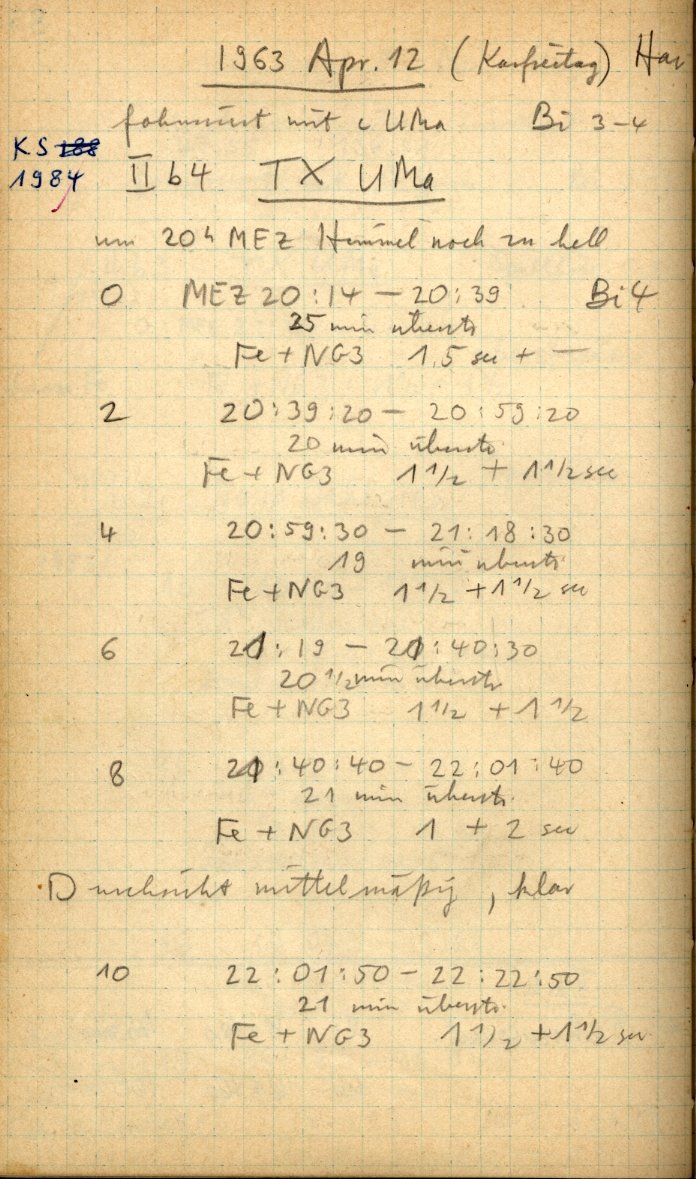 1963 Apr. 12 (Karfreitag) Har
fokussiert mit ι UMa Bi 3-4
KS 188
1984
II b4 TX UMa
um 20h MEZ Himmel noch zu hell
0 MEZ 20:14 – 20:39 Bi 4
25 min überstr.
Fe + NG3 1,5 sec + —
2 20:39:20 – 20:59:20
20 min überstr.
Fe + NG3 1 1/2 + 1 1/2 sec
4 20:59:30 – 21:18:30
19 min überstr.
Fe + NG3 1 1/2 + 1 1/2 sec
6 21:19 – 21:40:30
20 1/2 min überstr.
Fe + NG3 1 1/2 + 1 1/2
8 21:40:40 – 22:01:40
21 min überstr.
Fe + NG3 1 + 2 sec
Durchsicht mittelmäßig, klar
10 22:01:50 – 22:22:50
21 min überstr.
Fe + NG3 1 1/2 + 1 1/2 sec